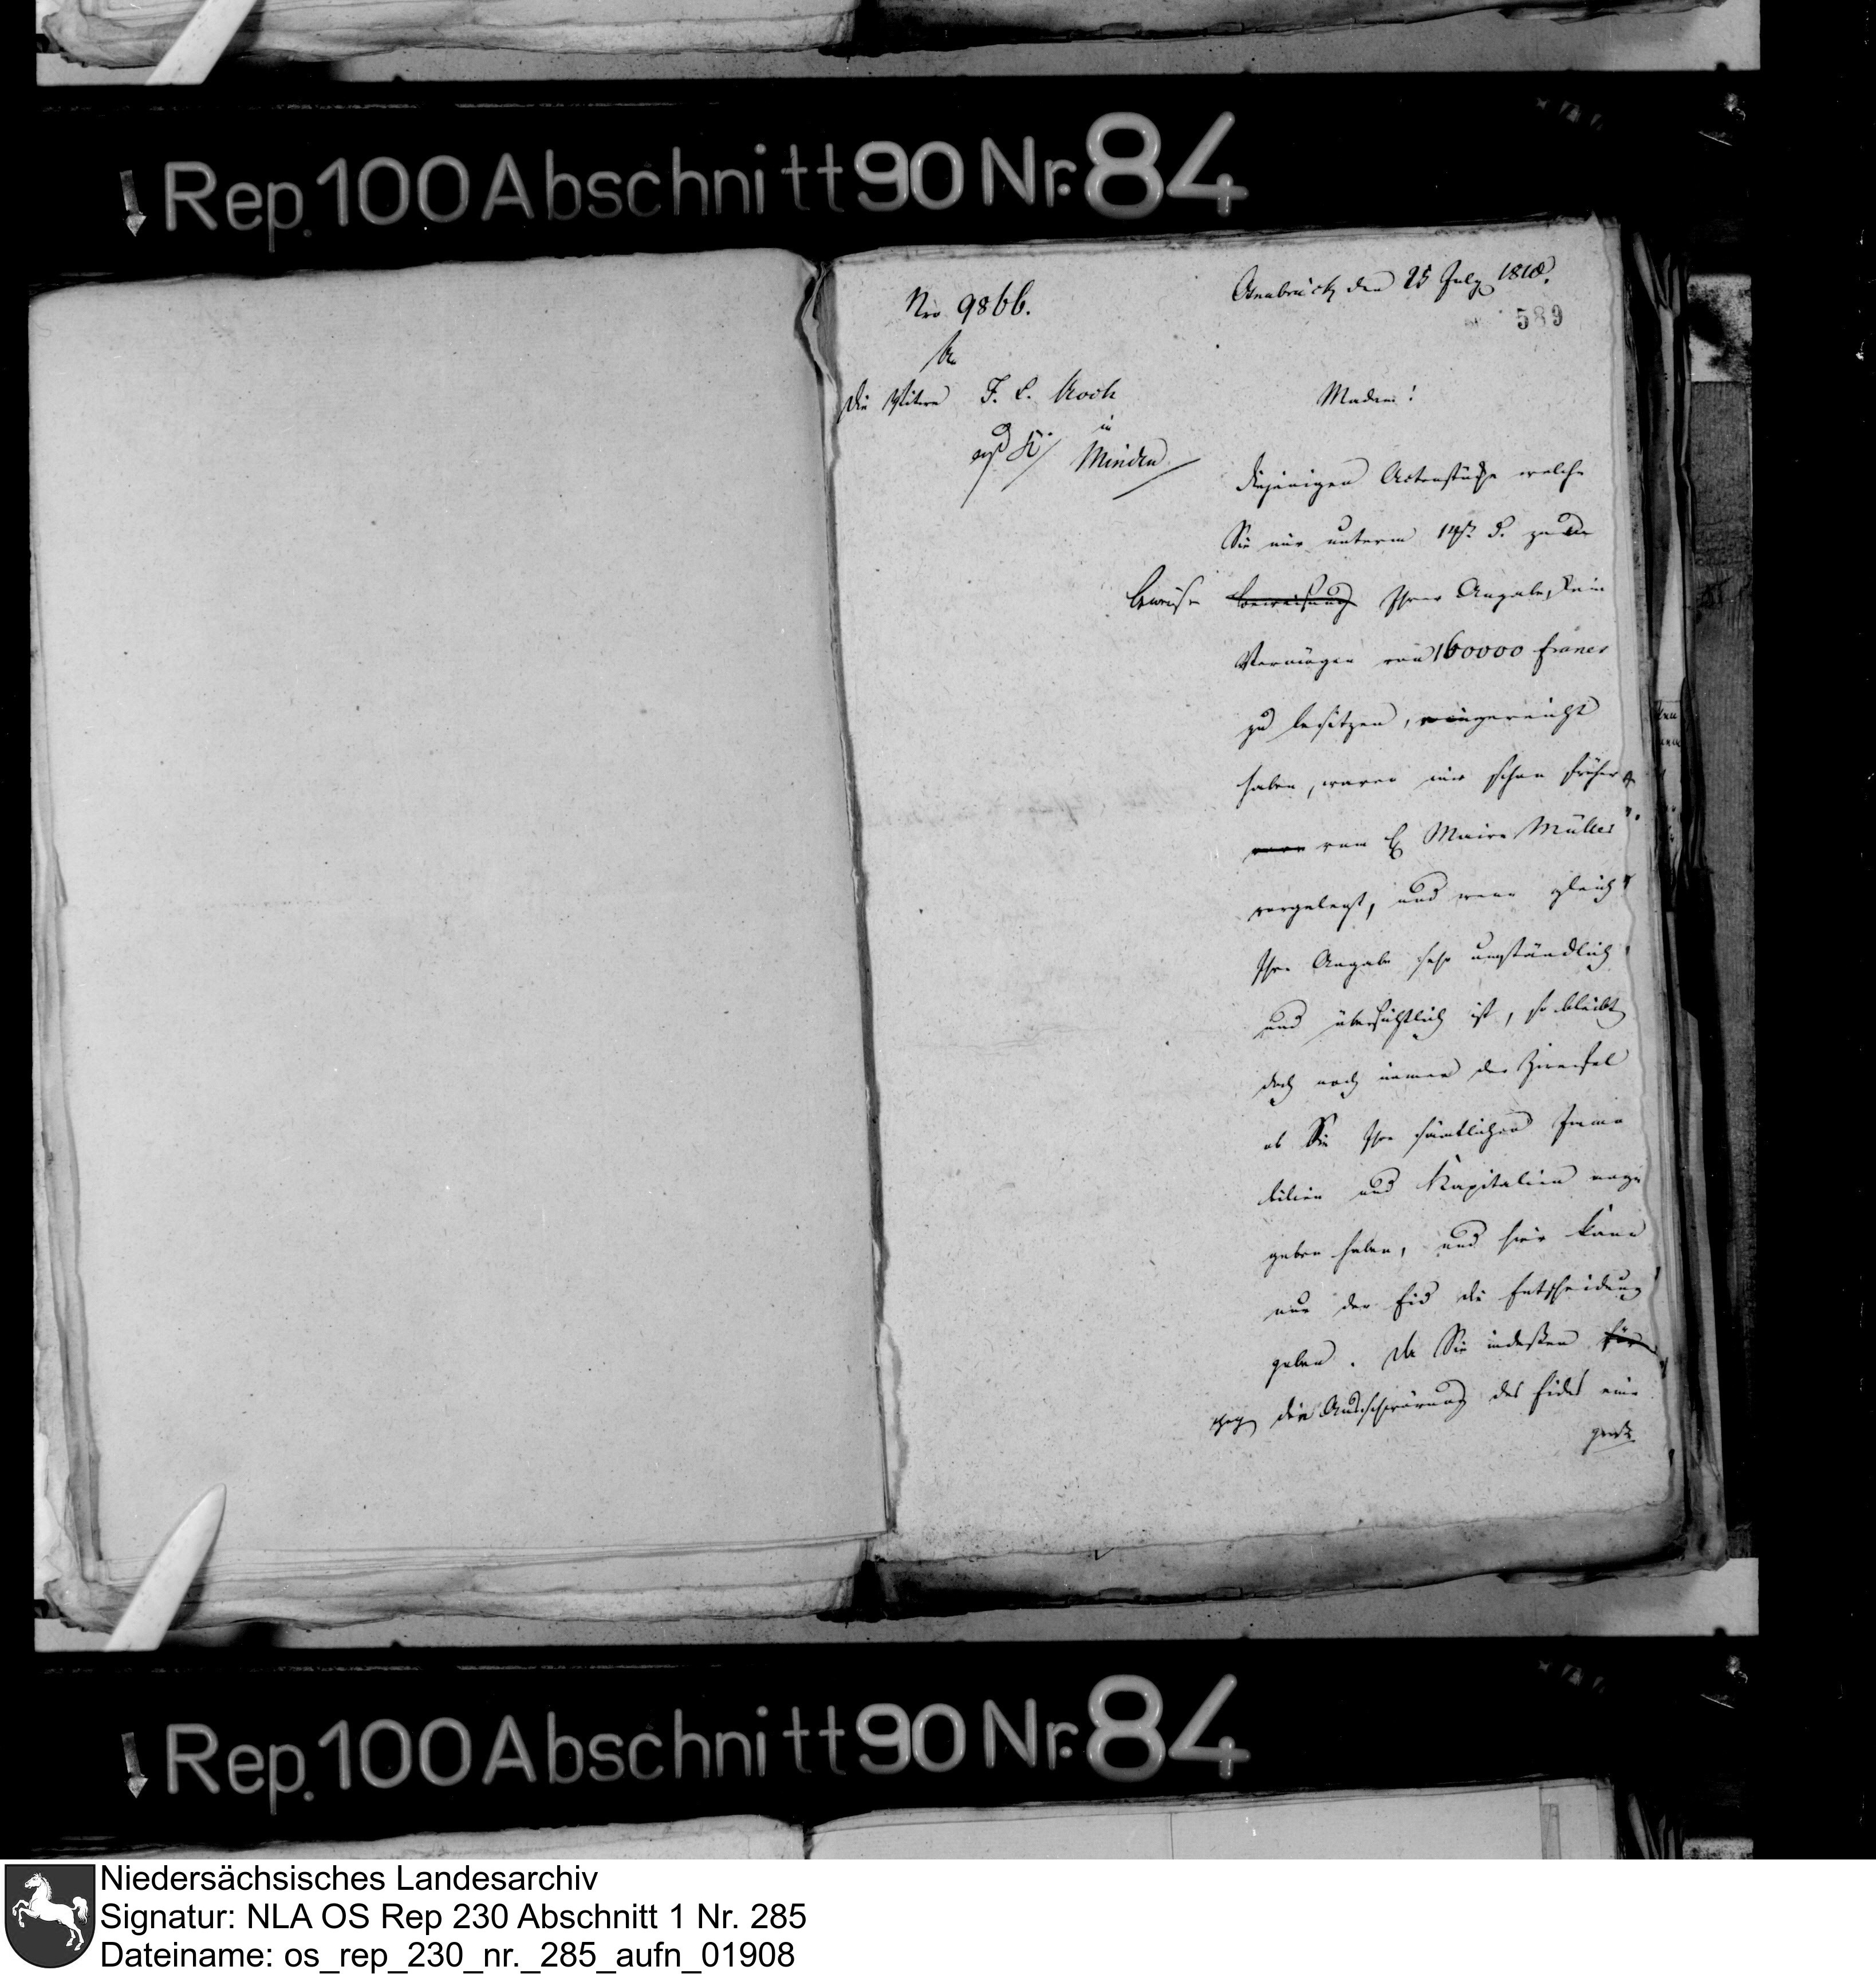 Rep. 100 Abschnitt 90 Nr. 84
Nro 9866.
Osnabrück den 25 July 1810.
589
An
die Witwe F. C. Koch
in
Minden
Madam!
Diejenigen Actenstücke welche
Sie mir unterm 14t. d. zum
Beweise Beweisung Ihrer Angabe, kein
Vermögen von 160000 francs
zu besitzen, eingereicht
haben, waren mir schon früher
vom H Maire Müller
vorgelegt, und wenn gleich
Ihre Angabe sehr umständlich
und übersichtlich ist, so bleibt
doch noch immer der Zweifel
ob Sie Ihre sämtlichen Immo
bilien und Kapitalien ange
geben haben, und hier kann
nur der Eid die Entscheidung
geben. Da Sie indeßen für
gegen die Ausschwörung des Eides eine
Rep. 100 Abschnitt 90 Nr. 84
Niedersächsisches Landesarchiv
Signatur: NLA OS Rep 230 Abschnitt 1 Nr. 285
Dateiname: os_rep_230_nr._285_aufn_01908